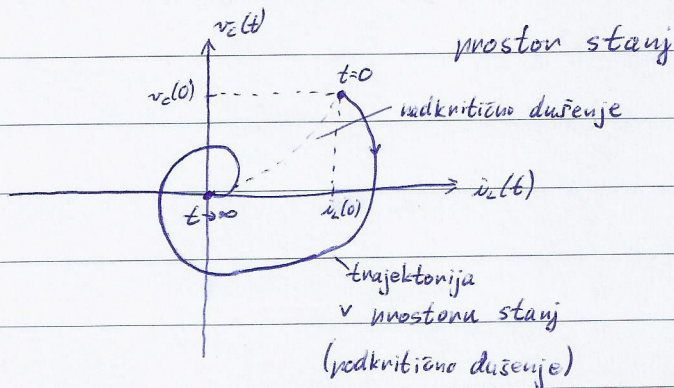 v_C(t)
prostor stanj
t=0
v_C(0)
nadkritično dušenje
i_L(t)
t→∞
i_L(0)
trajektorija
v prostoru stanj
(podkritično dušenje)